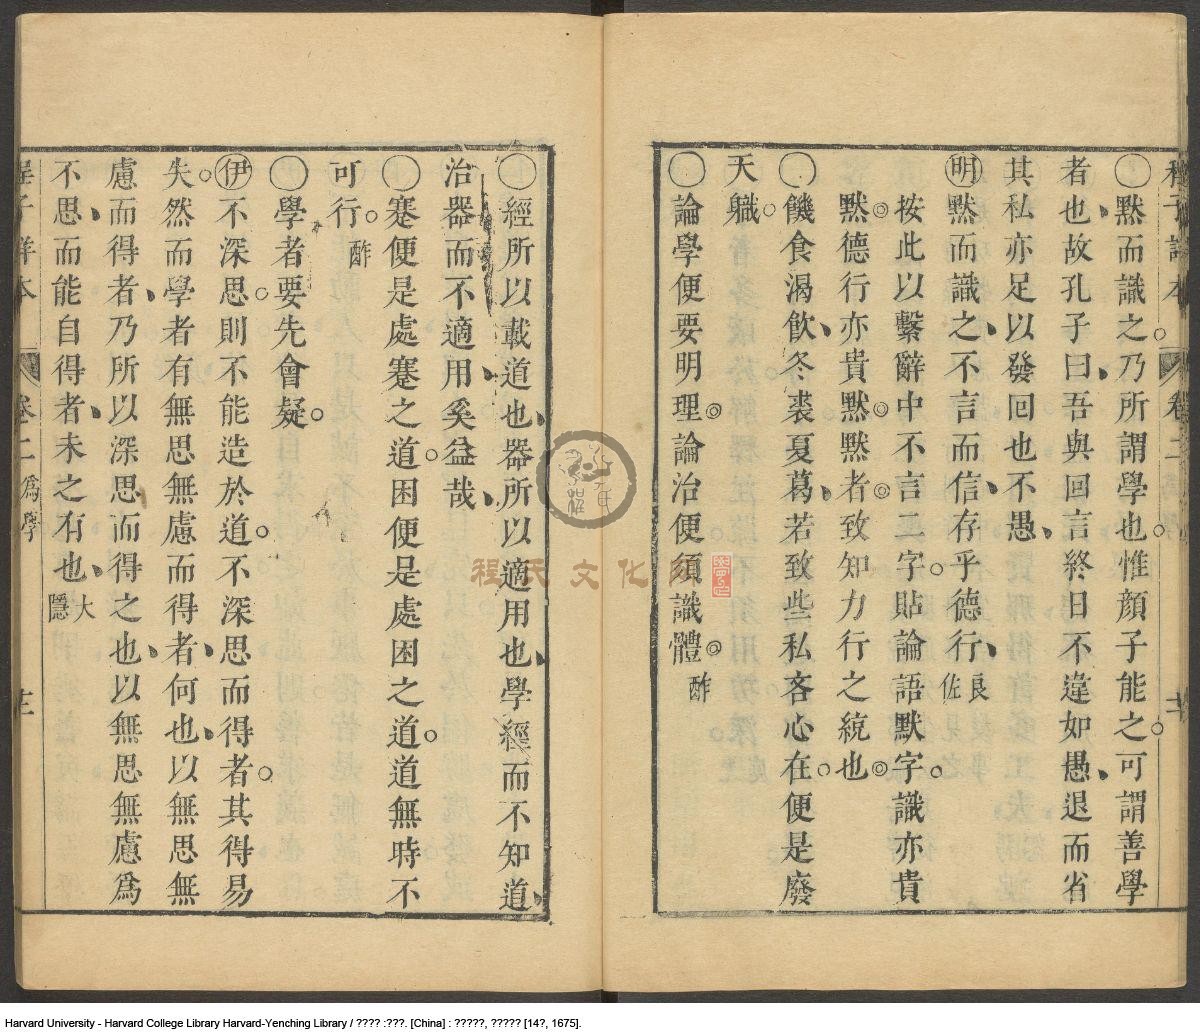 卷二
默而識之乃所謂學也惟顏子能之可謂善學
者也故孔子曰吾與回言終日不違如愚退而省
其私亦足以發回也不愚
明 默而識之不言而信存乎德行 良佐
按此以繫辭中不言二字貼論語默字識亦貴
默德行亦貴默默者致知力行之統也
饑食渴飲冬裘夏葛若致些私吝心在便是廢
天職
論學便要明理論治便須識體 酢
經所以載道也器所以適用也學經而不知道
治器而不適用奚益哉
蹇便是處蹇之道困便是處困之道道無時不
可行 酢
學者要先會疑
伊 不深思則不能造於道不深思而得者其得易
失然而學者有無思無慮而得者何也以無思無
慮而得者乃所以深思而得之也以無思無慮為
不思而能自得者未之有也 大隱
卷二 為學
程氏文化
Harvard University - Harvard College Library Harvard-Yenching Library / ???? :???. [China] : ?????, ????? [14?, 1675].